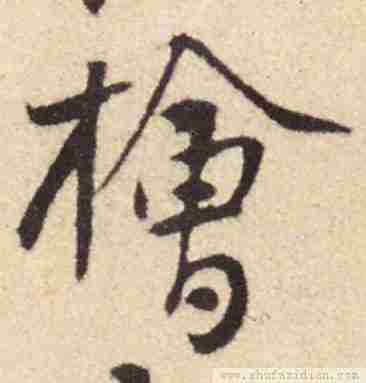 檜
www.shufazidian.com